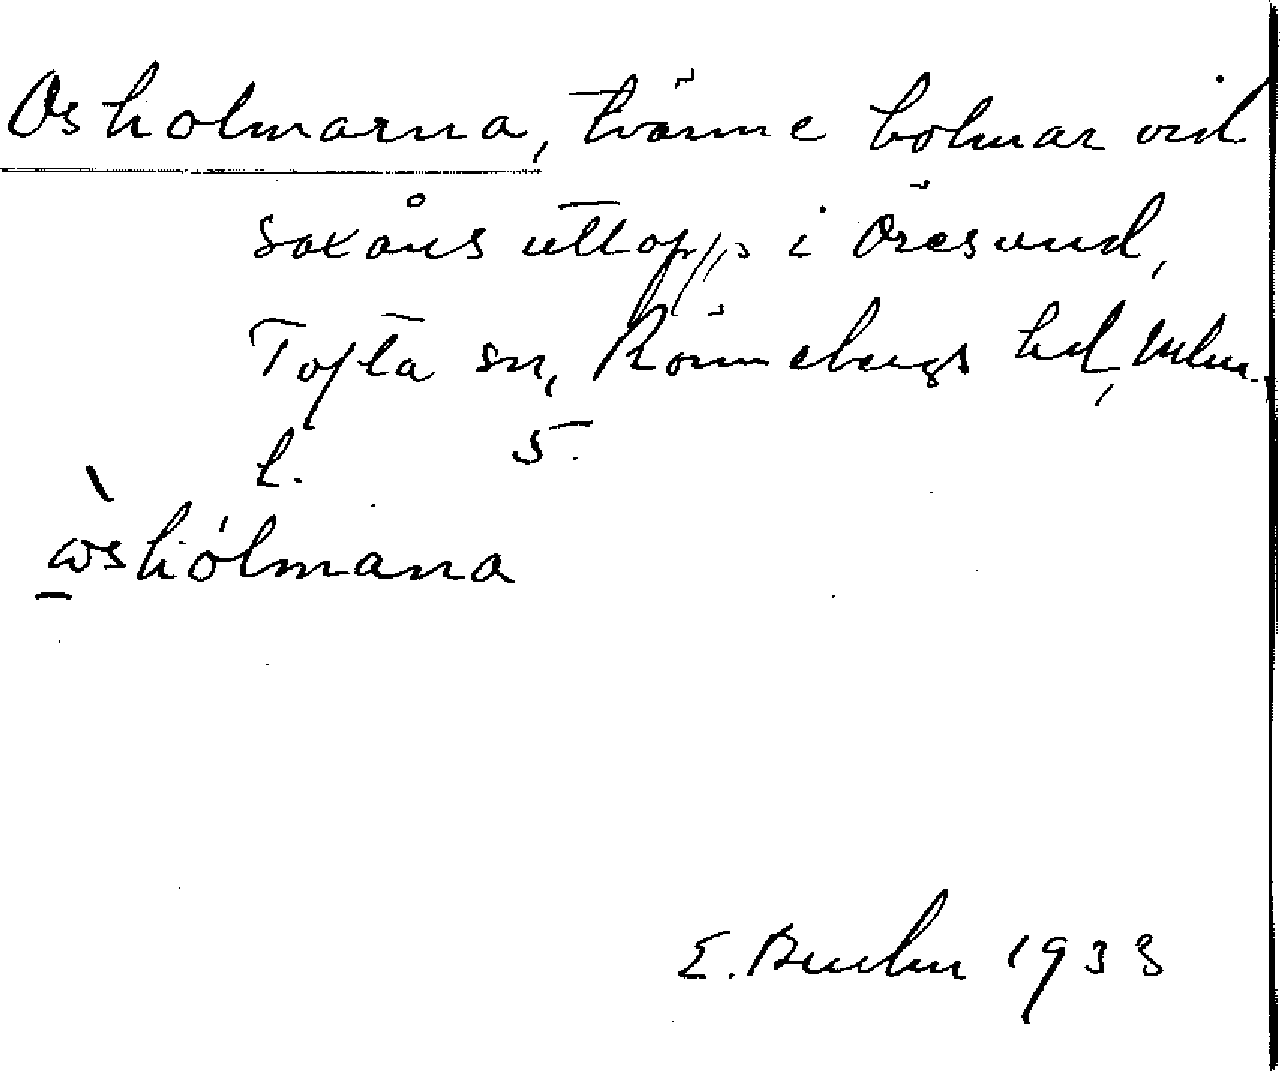 Osholmarna, tvänne holmar vid
Saxåns utlopp i Öresund,
Tofta sn, Rönnebergs hd, Mlm.
l. 5.
ωshólmana
E. 1933